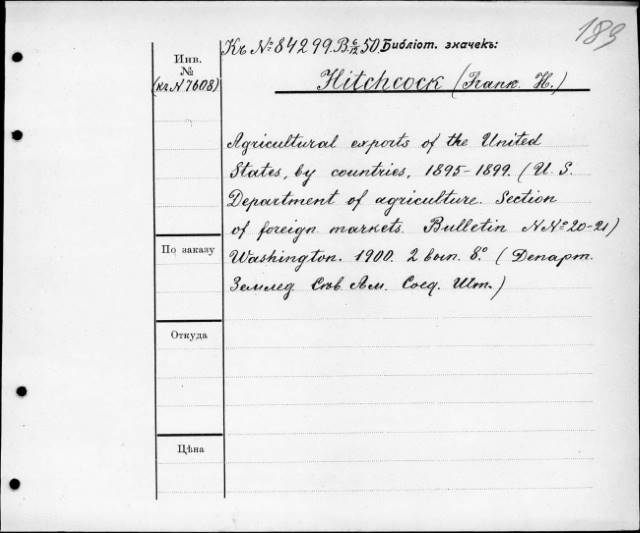 189
Къ № 84299.B 6/12 50 Библіот. значекъ:
Инв.
№
(къ N 7608)
Hitchcock (Frank. H.)
Agricultural exports of the United
States, by countries, 1895-1899. (U. S.
Department of agriculture. Section
of foreign markets. Bulletin NNº 20-21)
По заказу
Washington. 1900. 2 вып. 8º. (Департ.
Землед. Сѣв. Ам. Соед. Шт.)
Откуда
Цѣна